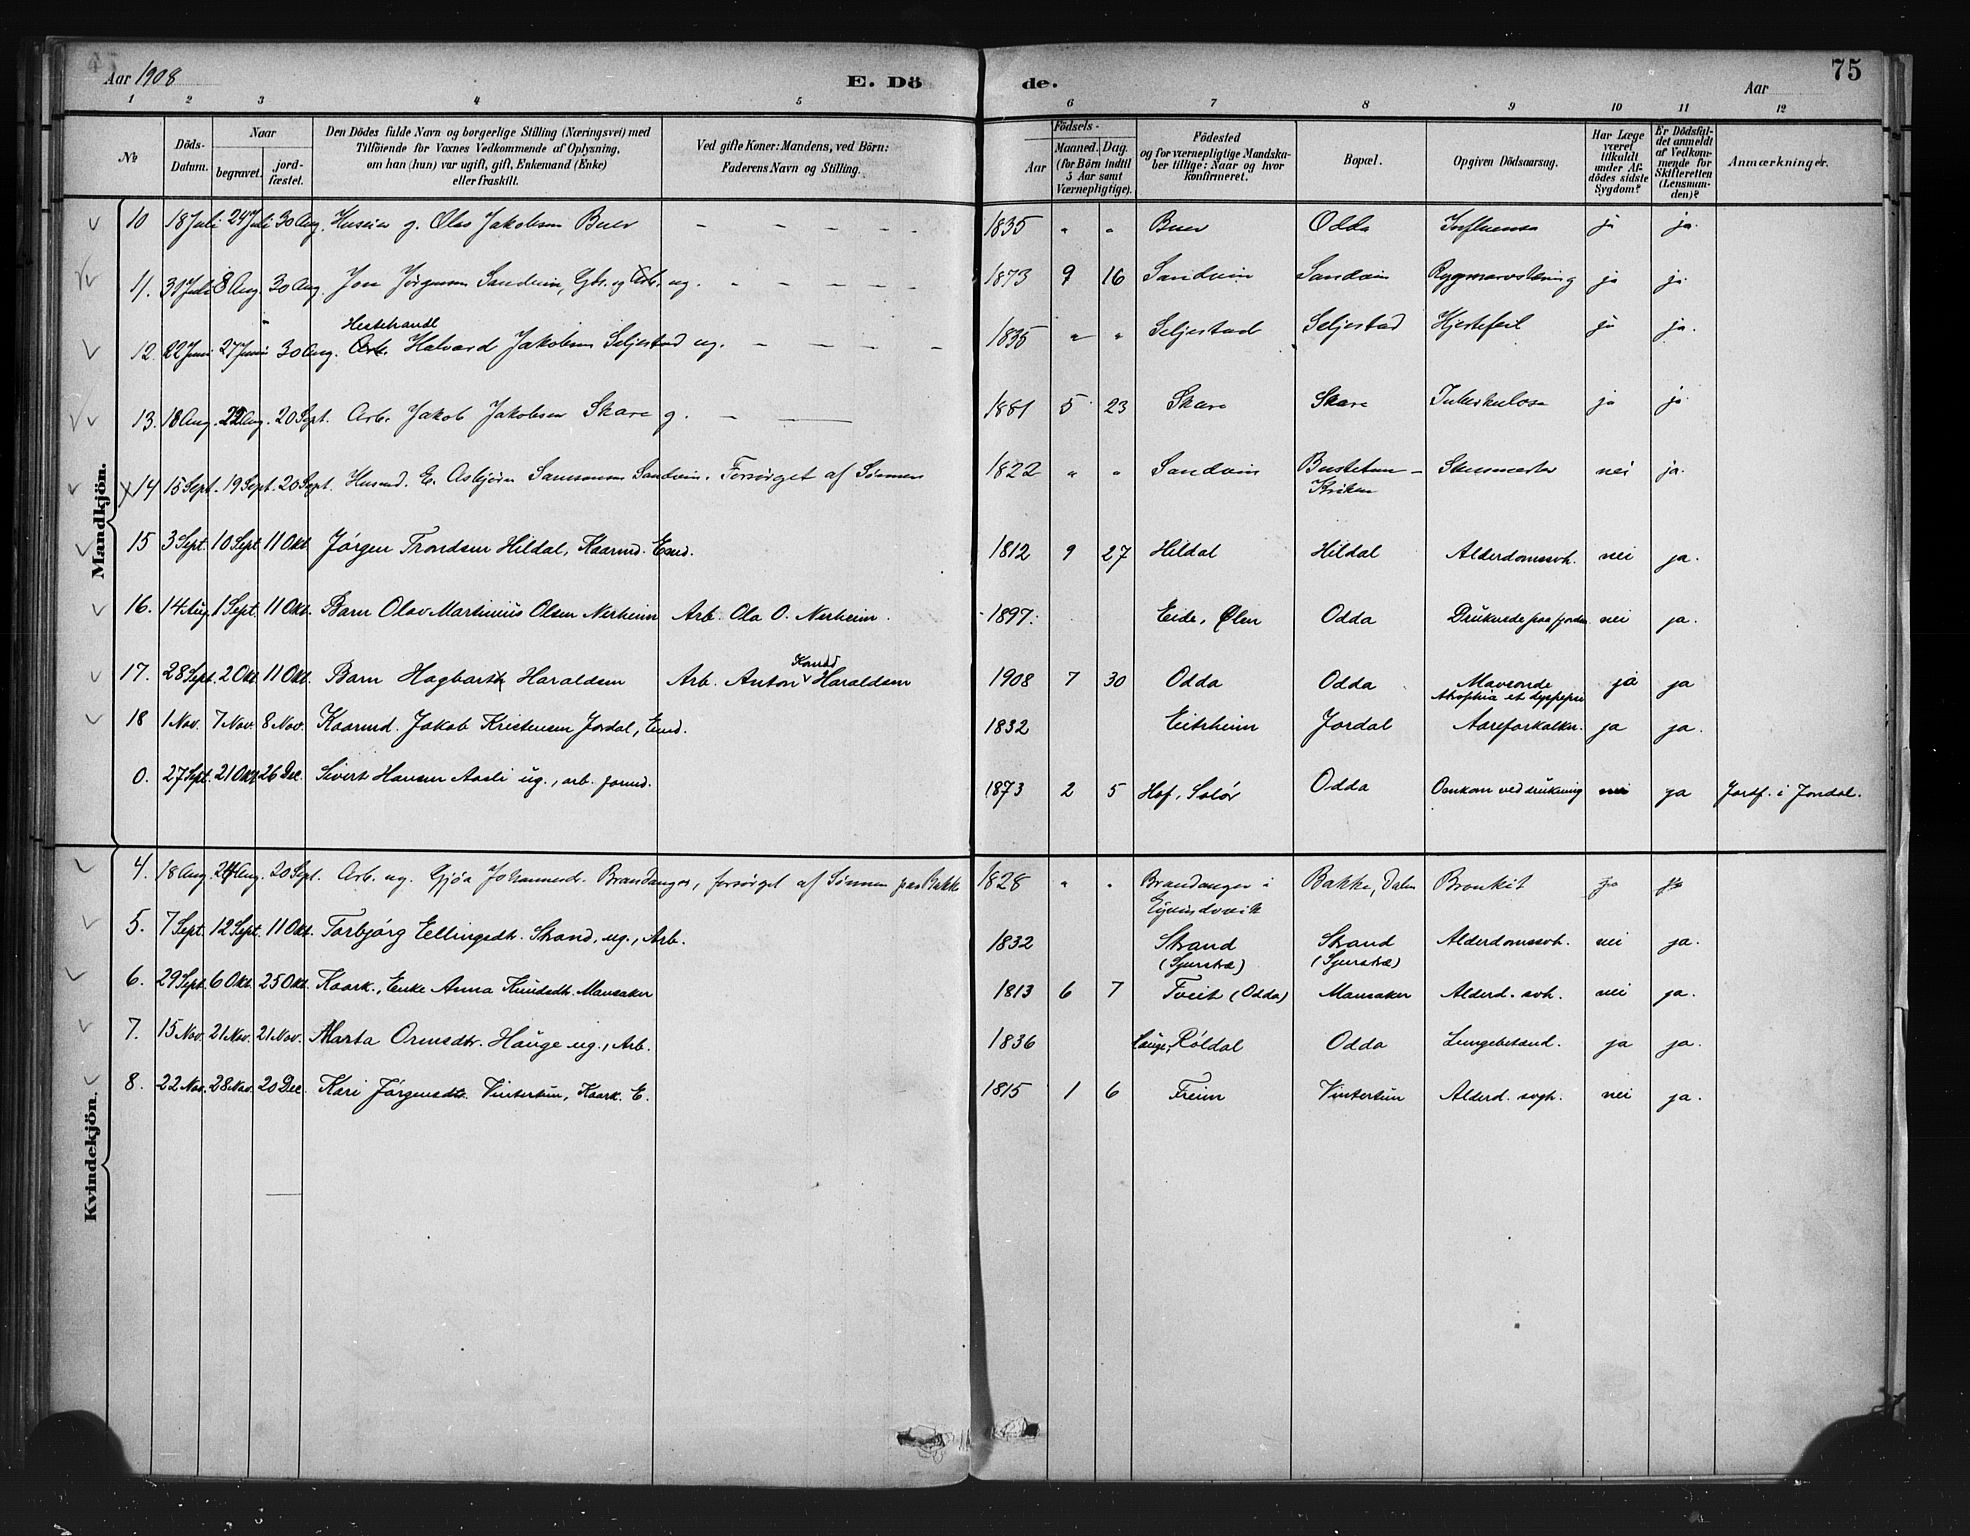 Aar 1908 E. Dö de. Aar 75
1 2 3 4 5 6 7 8 9 10 11 12
No
Döds-Datum.
Naar begravet. jordfæstet.
Den Dödes fulde Navn og borgerlige Stilling (Næringsvei) med Tilföiende for Voxnes Vedkommende af Oplysning, om han (hun) var ugift, gift, Enkemand (Enke) eller fraskilt.
Ved gifte Koner: Mandens, ved Börn: Faderens Navn og Stilling.
Födsels- Aar Maaned. Dag. (for Börn indtil 5 Aar samt Værnepligtige).
Födested og for værnepligtige Mandskaber tillige: Naar og hvor konfirmeret.
Bopæl.
Opgiven Dödsaarsag.
Har Læge været tilkaldt under Afdödes sidste Sygdom?
Er Dödsfaldet anmeldt af Vedkommende for Skifteretten (Lensmanden)?
Anmærkninger.
Mandkjön.
10 18 Juli 24 Juli 30 Aug. Huseier g. Olav Jakobsen Buer - - - - - 1835 " " Buer Odda Influensa ja ja.
11. 31 Juli 8 Aug. 30 Aug. Jon Jørgensen Sandvin, Gbr. og Arb. ug. - - - - - 1873 9 16 Sandvin Sandvin Rygmarvstæring ja ja
12. 22 Juni 27 Juni 30 Aug. Hestehandl Arb. Halvard Jakobsen Seljestad ug. - - - - 1835 " " Seljestad Seljestad Hjertefeil ja ja.
13. 18 Aug. 22 Aug. 20 Sept. Arb. Jakob Jakobsen Skare g. - — 1881 5 23 Skare Skare Tuberkulose ja ja
14 15 Sept. 19 Sept. 20 Sept. Husmd. E. Asbjørn Samsonsen Sandvin. Forsørget af Sønnen 1822 " " Sandvin Bustetun - Kriken nei ja.
15 3 Sept. 10 Sept. 11 Okt. Jørgen Trondsen Hildal, Kaarmd. Emd. 1812 9 27 Hildal Hildal Alderdomssvh. nei ja.
16. 14 Aug. 1 Sept. 11 Okt. Barn Olav Martinius Olsen Nerheim Arb. Ola O. Nerheim. 1897. Eide, Ølen Odda Druknede paa fjorden nei ja.
17. 28 Sept. 2 Okt. 11 Okt. Barn Hagbart Haraldsen Arb. Anton Konrad Haraldsen 1908 7 30 Odda Odda Maveonde Atrophia et dyspepsi ja ja
18 1 Nov. 7 Nov. 8 Nov. Kaarmd. Jakob Kristensen Jordal, Emd. 1832 Eitrheim Jordal Aareforkalkn. ja ja.
0. 27 Sept. 21 Okt. 26 Dec. Sivert Hansen Aasli ug., arb. 1873 2 5 Hof, Solør Odda Omkom ved drukning nei ja Jordf. i Jondal.
Kvindekjön.
4. 18 Aug. 24 Aug. 20 Sept. Arb. ug. Gjøa Johannesdr. Brandanger, forsørget af Sønnen paa Bakke 1828 " " Brandanger i Eyvindsvik Bakke, Dalen Bronkit ja ja
5. 7 Sept. 12 Sept. 11 Okt. Torbjørg Ellingsdtr. Strand, ug., Arb. 1832 Strand (Sjurstræ) Strand (Sjurstræ) Alderdomssvh. nei ja.
6. 29 Sept. 6 Okt. 25 Okt. Kaark., Enke Anna Knudsdtr. Mannsaker 1813 6 7 Tveit (Odda) Mannsaker Alderd. svh. nei ja.
7. 15 Nov. 21 Nov. 21 Nov. Marta Ormsdtr. Hauge ug., Arb. 1836 Hauge, Røldal Odda Lungebetænd. ja ja.
8. 22 Nov. 28 Nov. 20 Dec. Kari Jørgensdtr. Vintertun, Kaark. E. 1815 1 6 Freim Vintertun Alderd. svgh. nei ja.